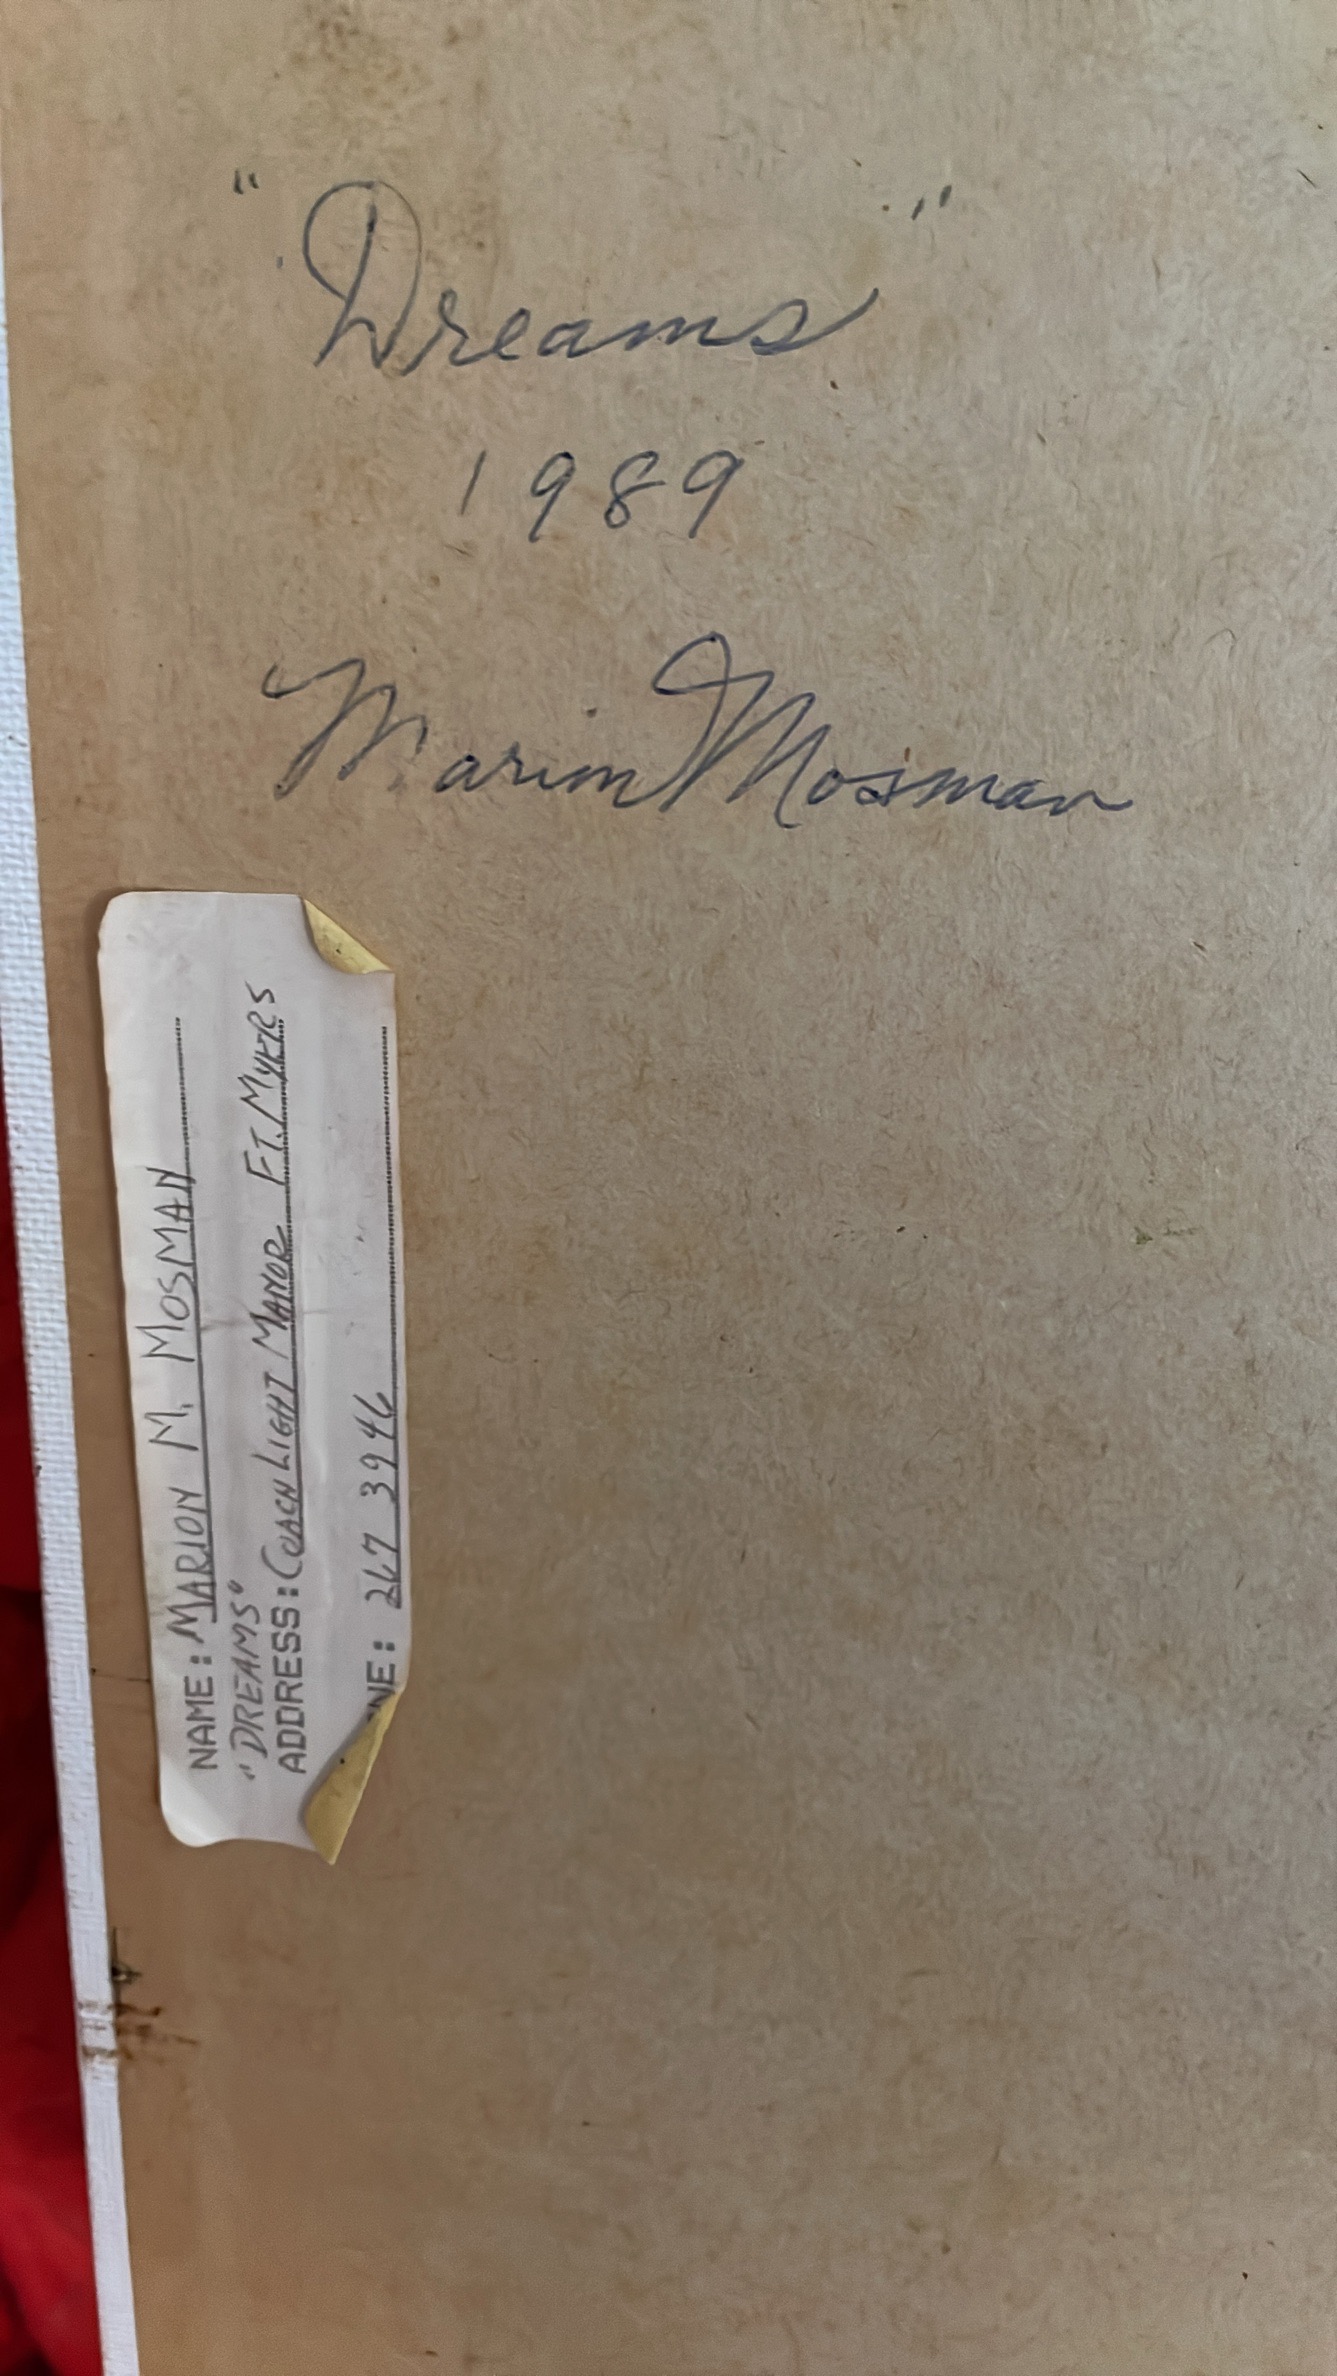 "Dreams"
1989
Marion Mosman
NAME: MARION M. MOSMAN
"DREAMS"
ADDRESS: COACH LIGHT MANOR FT. MYERS
NE: 267 3946